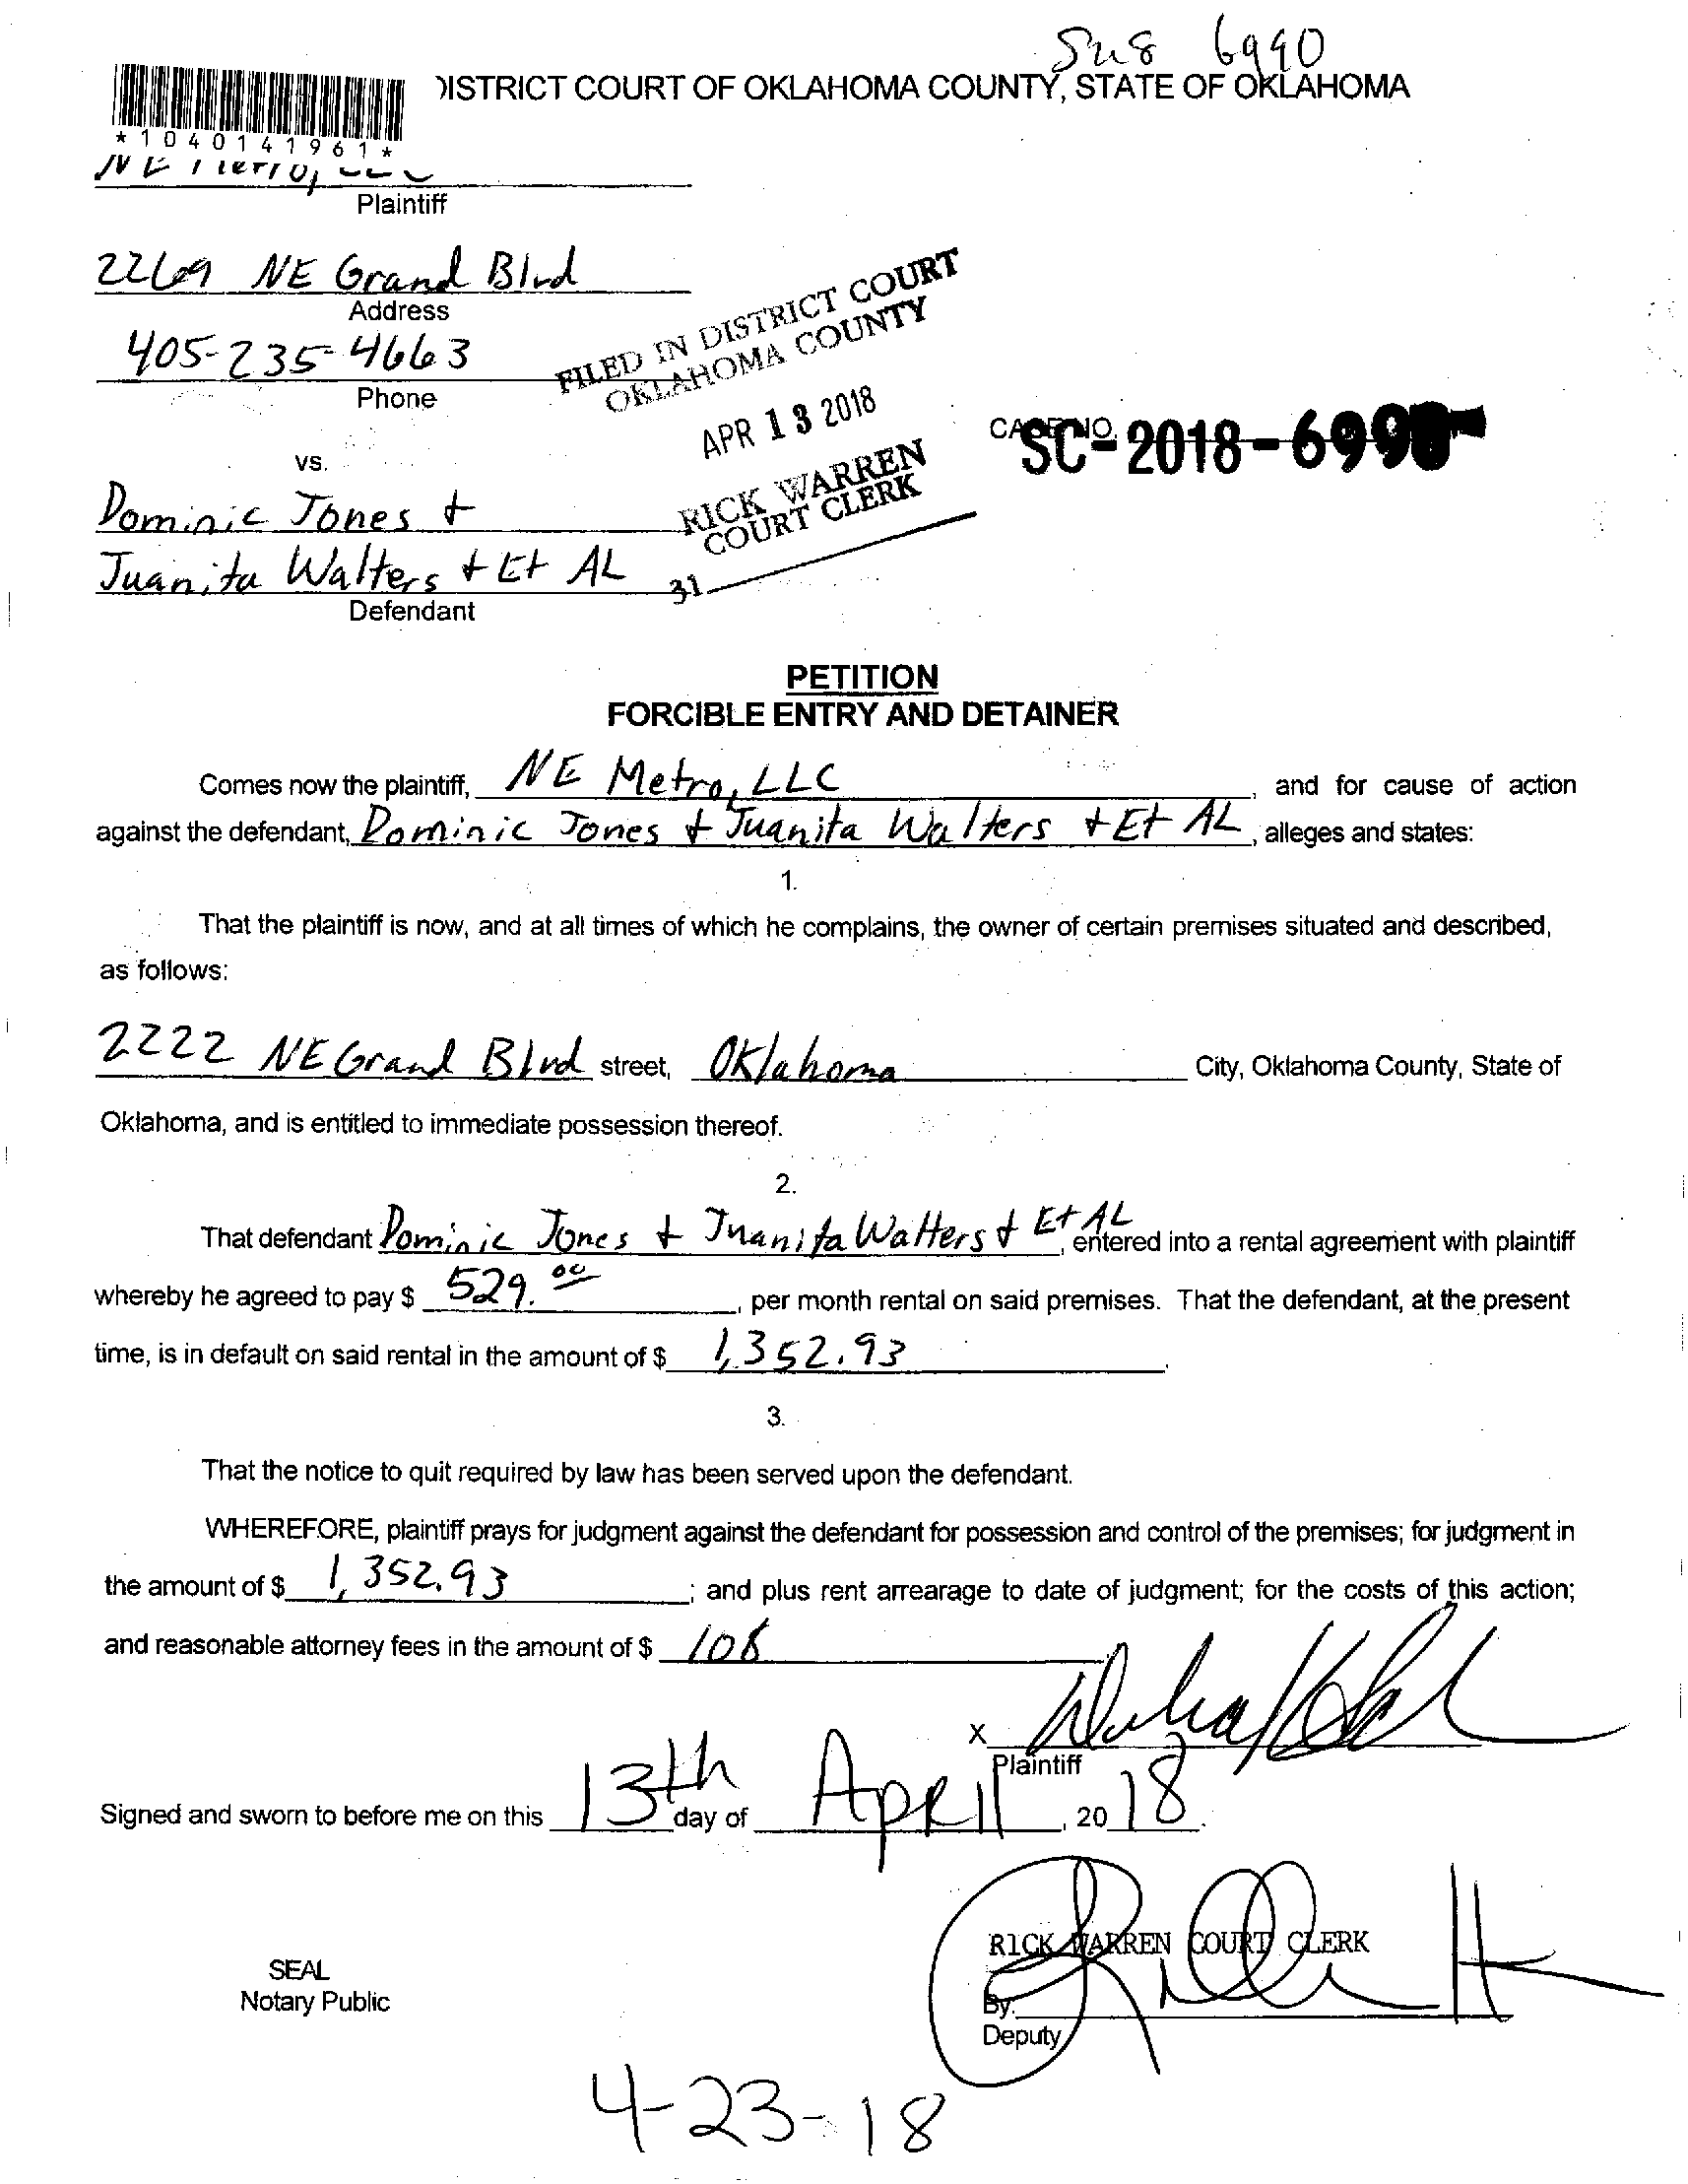 6990
DISTRICT COURT OF OKLAHOMA COUNTY, STATE OF OKLAHOMA
*1040141961*
NE Metro, LLC
Plaintiff
2269 NE Grand Blvd
Address
405-235-4663
Phone
FILED IN DISTRICT COURT
OKLAHOMA COUNTY
APR 13 2018
RICK WARREN
COURT CLERK
31
CASE NO.
SC-2018-6990
vs.
Dominic Jones +
Juanita Walters + Et AL
Defendant
PETITION
FORCIBLE ENTRY AND DETAINER
Comes now the plaintiff, NE Metro, LLC, and for cause of action
against the defendant, Dominic Jones + Juanita Walters + Et AL, alleges and states:
1.
That the plaintiff is now, and at all times of which he complains, the owner of certain premises situated and described,
as follows:
2222 NE Grand Blvd street, Oklahoma City, Oklahoma County, State of
Oklahoma, and is entitled to immediate possession thereof.
2.
That defendant Dominic Jones + Juanita Walters + Et AL, entered into a rental agreement with plaintiff
whereby he agreed to pay $ 529.00, per month rental on said premises. That the defendant, at the present
time, is in default on said rental in the amount of $ 1,352.93.
3.
That the notice to quit required by law has been served upon the defendant.
WHEREFORE, plaintiff prays for judgment against the defendant for possession and control of the premises; for judgment in
the amount of $ 1,352.93; and plus rent arrearage to date of judgment; for the costs of this action;
and reasonable attorney fees in the amount of $ 108
X
Plaintiff
Signed and sworn to before me on this 13th day of April, 20 18.
RICK WARREN COURT CLERK
SEAL
Notary Public
By:
Deputy
4-23-18